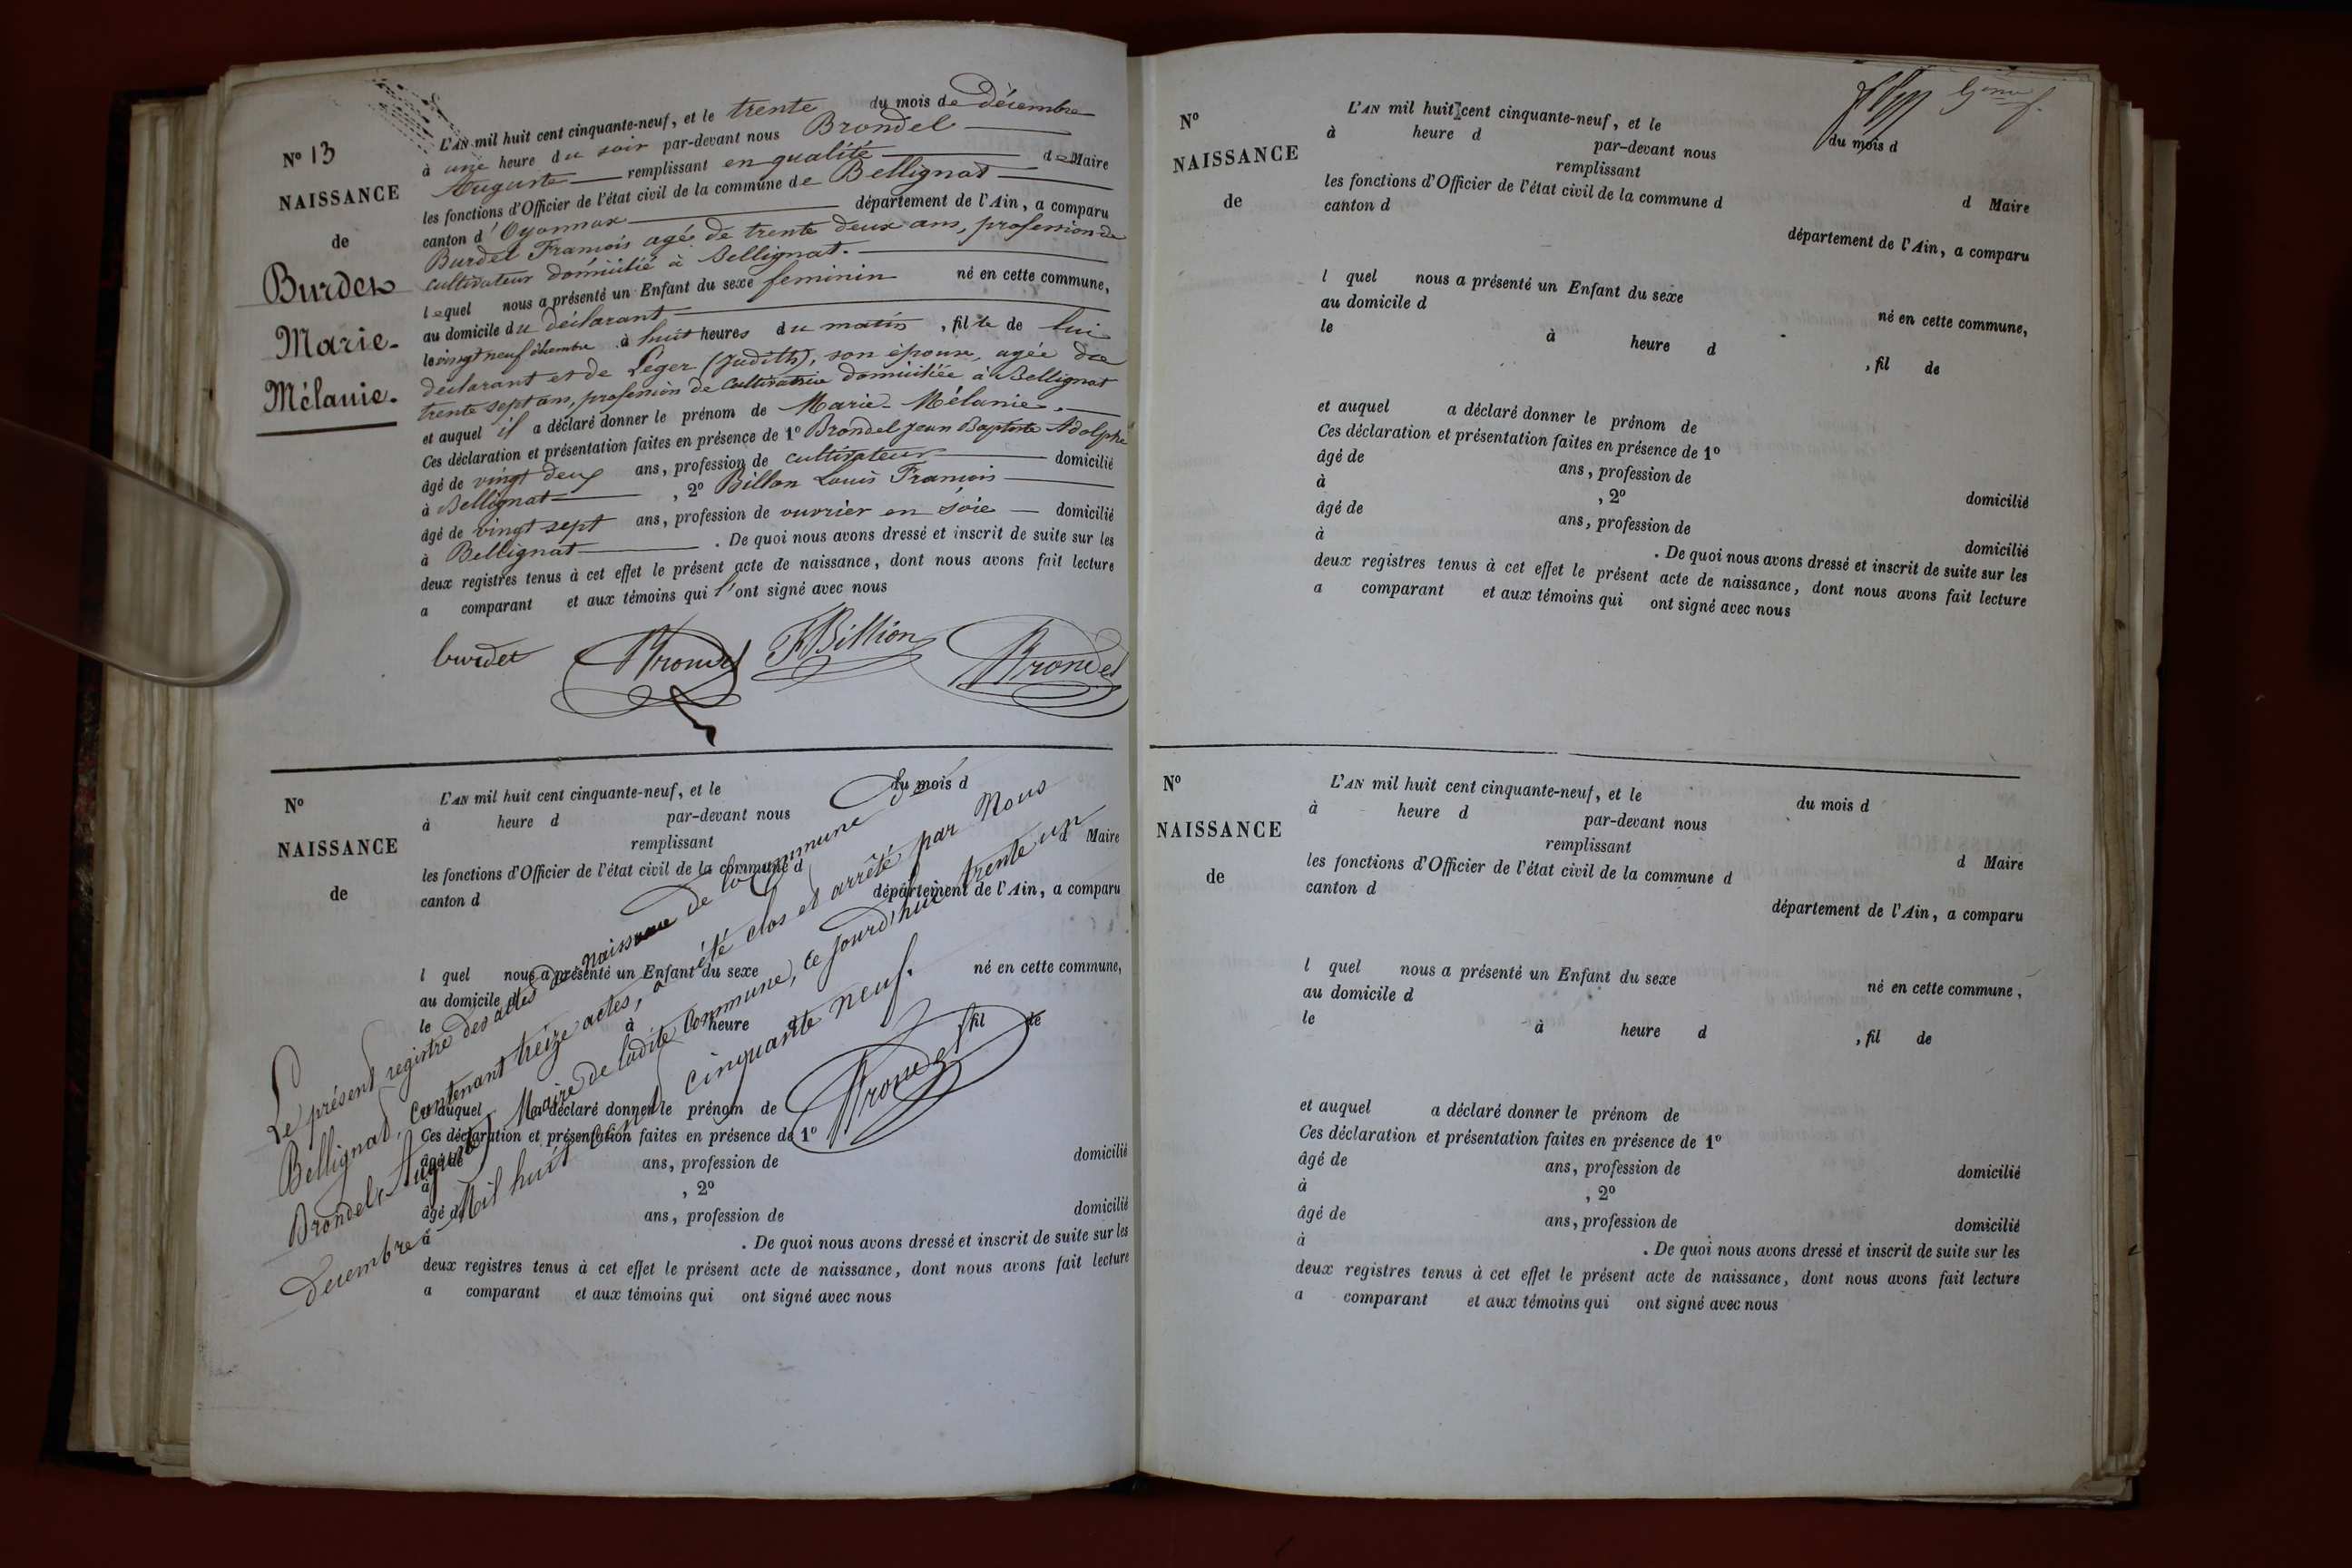 N° 13
NAISSANCE
de
Burdet
Marie-
Mélanie.
L'AN mil huit cent cinquante-neuf, et le trente du mois de décembre
à une heure du soir par-devant nous Brondel
Auguste remplissant en qualité de Maire
les fonctions d'Officier de l'état civil de la commune de Bellignat
canton d'Oyonnax département de l'Ain, a comparu
Burdet François agé de trente deux ans, profession de
cultivateur domicilié à Bellignat.
lequel nous a présenté un Enfant du sexe feminin né en cette commune,
au domicile du déclarant
le vingt neuf décembre à huit heures du matin, fille de lui
déclarant et de Léger (Judith), son épouse, agée de
trente sept ans, profession de cultivatrice domiciliée à Bellignat
et auquel il a déclaré donner le prénom de Marie-Mélanie.
Ces déclaration et présentation faites en présence de 1° Brondel Jean Baptiste Adolphe
âgé de vingt deux ans, profession de cultivateur domicilié
à Bellignat, 2° Billon Louis François
âgé de vingt sept ans, profession de ouvrier en soie domicilié
à Bellignat. De quoi nous avons dressé et inscrit de suite sur les
deux registres tenus à cet effet le présent acte de naissance, dont nous avons fait lecture
a comparant et aux témoins qui l'ont signé avec nous
burdet Brondel FBillion Brondel
N°
NAISSANCE
de
L'AN mil huit cent cinquante-neuf, et le du mois d
à heure d par-devant nous
remplissant d Maire
les fonctions d'Officier de l'état civil de la commune d
canton d département de l'Ain, a comparu
l quel nous a présenté un Enfant du sexe né en cette commune,
au domicile d
le à heure d , fil de
et auquel a déclaré donner le prénom de
Ces déclaration et présentation faites en présence de 1°
âgé de ans, profession de domicilié
à , 2°
âgé de ans, profession de domicilié
à . De quoi nous avons dressé et inscrit de suite sur les
deux registres tenus à cet effet le présent acte de naissance, dont nous avons fait lecture
a comparant et aux témoins qui ont signé avec nous
Le présent registre des actes de naissance de la Commune de
Bellignat, contenant treize actes, a été clos et arrêté par Nous
Brondel (Auguste) Maire de ladite Commune, ce jourd'hui trente un
Decembre Mil huit cent cinquante neuf.
Brondel
N°
NAISSANCE
de
L'AN mil huit cent cinquante-neuf, et le du mois d
à heure d par-devant nous
remplissant d Maire
les fonctions d'Officier de l'état civil de la commune d
canton d département de l'Ain, a comparu
l quel nous a présenté un Enfant du sexe né en cette commune,
au domicile d
le à heure d , fil de
et auquel a déclaré donner le prénom de
Ces déclaration et présentation faites en présence de 1°
âgé de ans, profession de domicilié
à , 2°
âgé de ans, profession de domicilié
à . De quoi nous avons dressé et inscrit de suite sur les
deux registres tenus à cet effet le présent acte de naissance, dont nous avons fait lecture
a comparant et aux témoins qui ont signé avec nous
N°
NAISSANCE
de
L'AN mil huit cent cinquante-neuf, et le du mois d
à heure d par-devant nous
remplissant d Maire
les fonctions d'Officier de l'état civil de la commune d
canton d département de l'Ain, a comparu
l quel nous a présenté un Enfant du sexe né en cette commune,
au domicile d
le à heure d , fil de
et auquel a déclaré donner le prénom de
Ces déclaration et présentation faites en présence de 1°
âgé de ans, profession de domicilié
à , 2°
âgé de ans, profession de domicilié
à . De quoi nous avons dressé et inscrit de suite sur les
deux registres tenus à cet effet le présent acte de naissance, dont nous avons fait lecture
a comparant et aux témoins qui ont signé avec nous